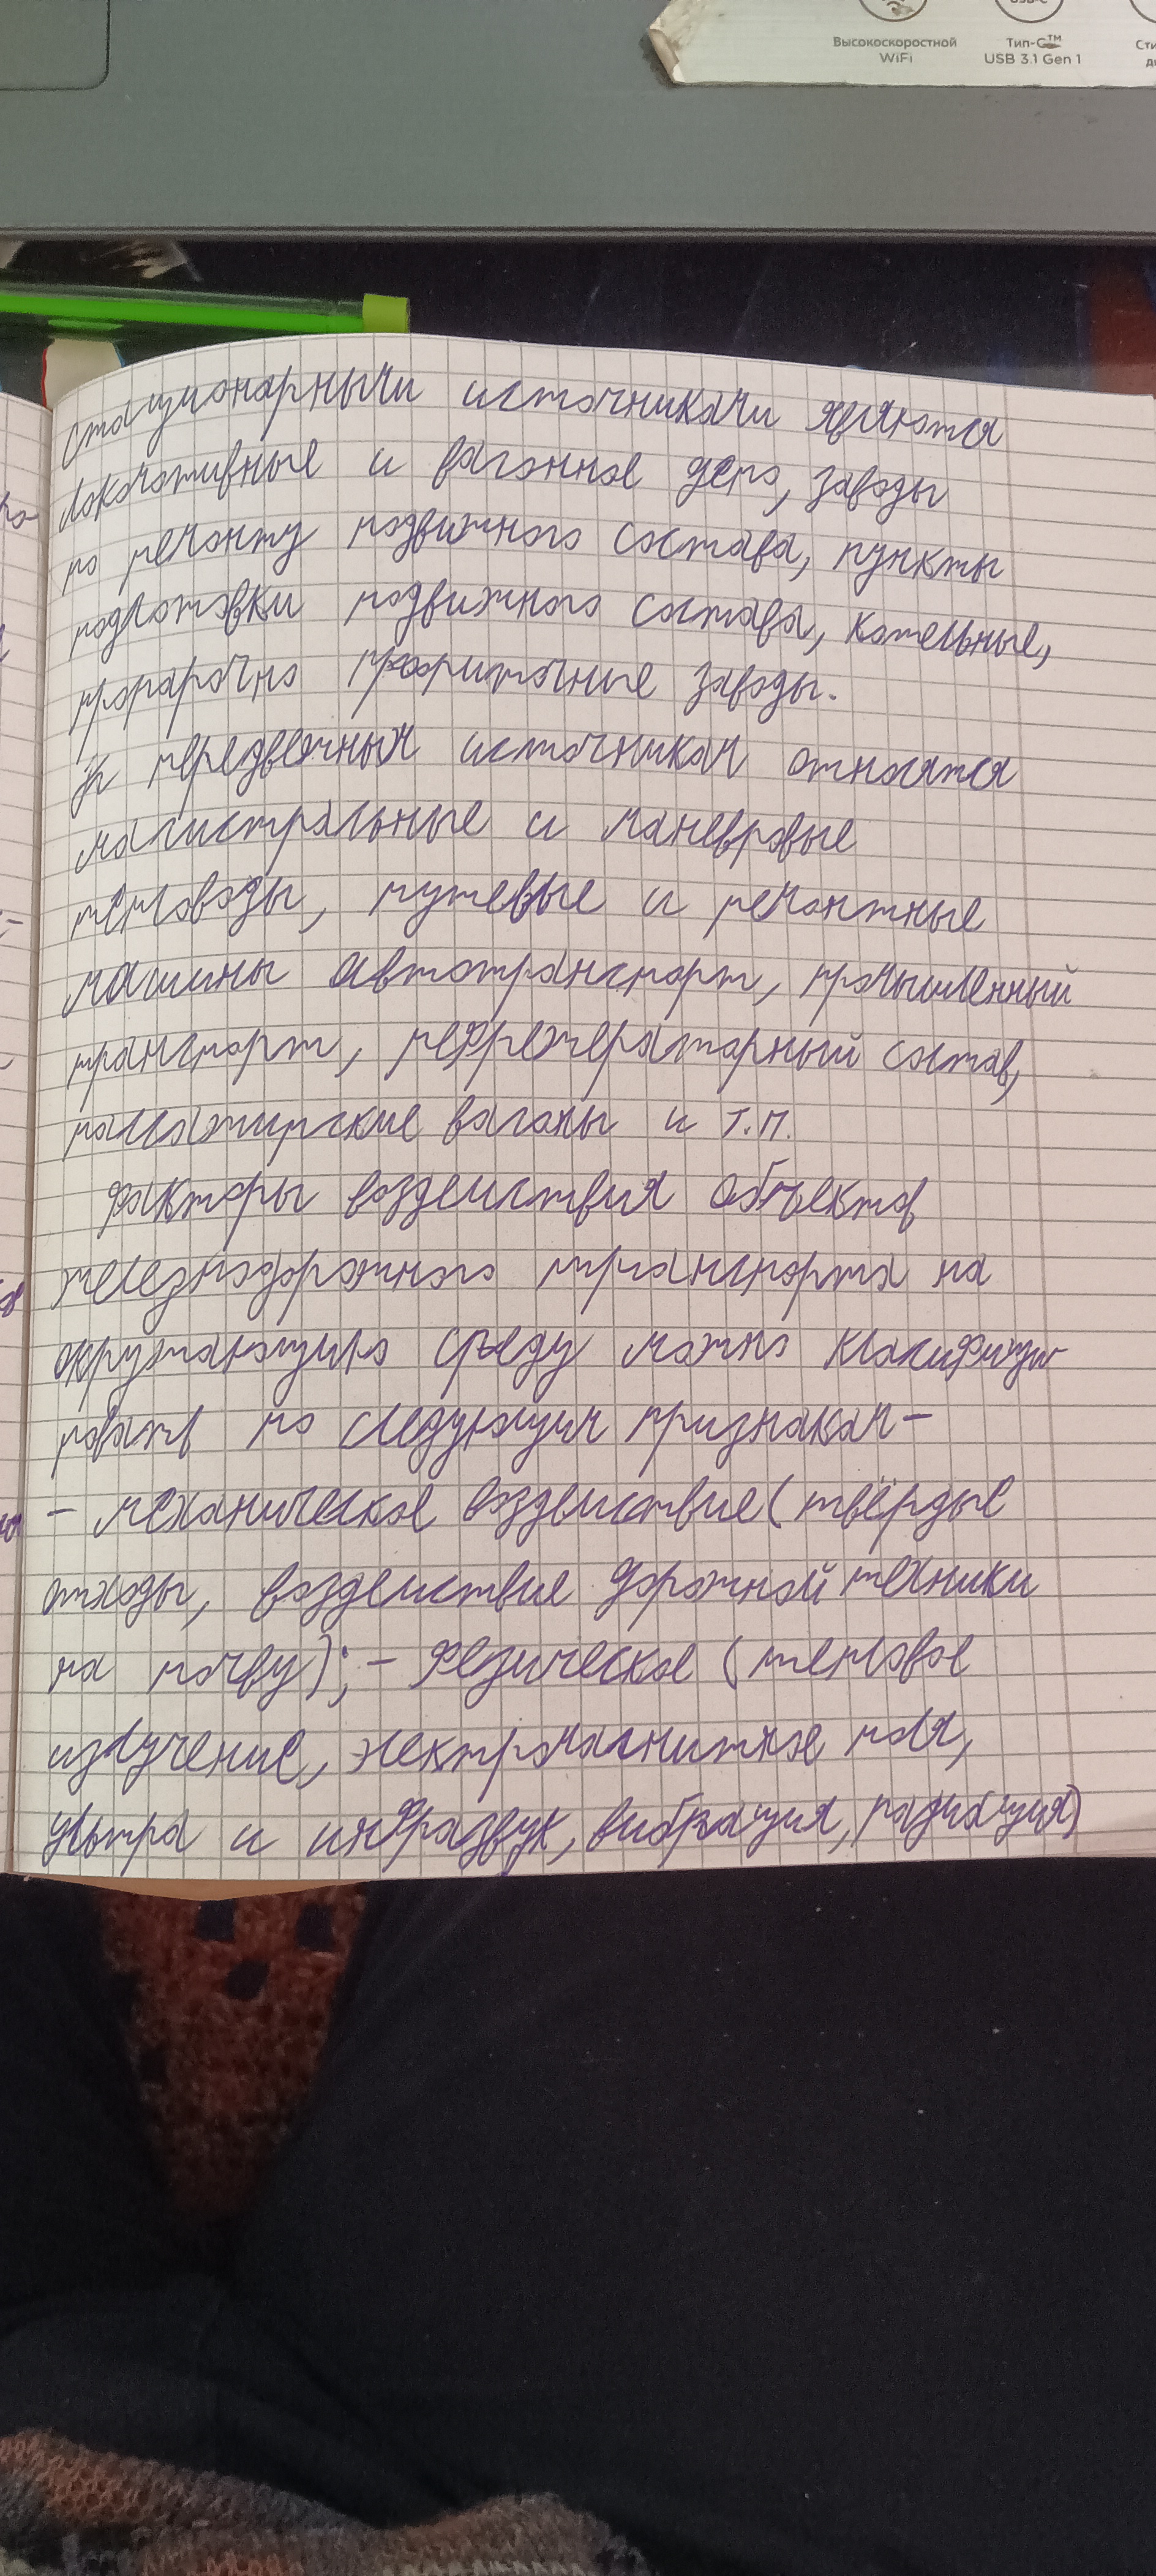 Высокоскоростной
WiFi
Тип-C™
USB 3.1 Gen 1
стационарными источниками являются
локомотивные и вагонное депо, заводы
по ремонту подвижного состава, пункты
подготовки подвижного состава, котельные,
пропарочно пропиточные заводы.
К передвежным источникам относятся
магистральные и маневровые
тепловозы, путевые и ремонтные
машины автотранспорт, промышленный
транспорт, рефрежераторный состав,
пассажирские вагоны и т.п.
факторы воздействия объектов
железнодорожного транспорта на
окружающую среду можно класифици
ровать по следующим признакам-
- механическое воздействие (твёрдые
отходы, воздействие дорожной техники
на почву); - Физическое (тепловое
излучение, электромагнитное поля,
ультра и инфразвук, вибрация, радиация)